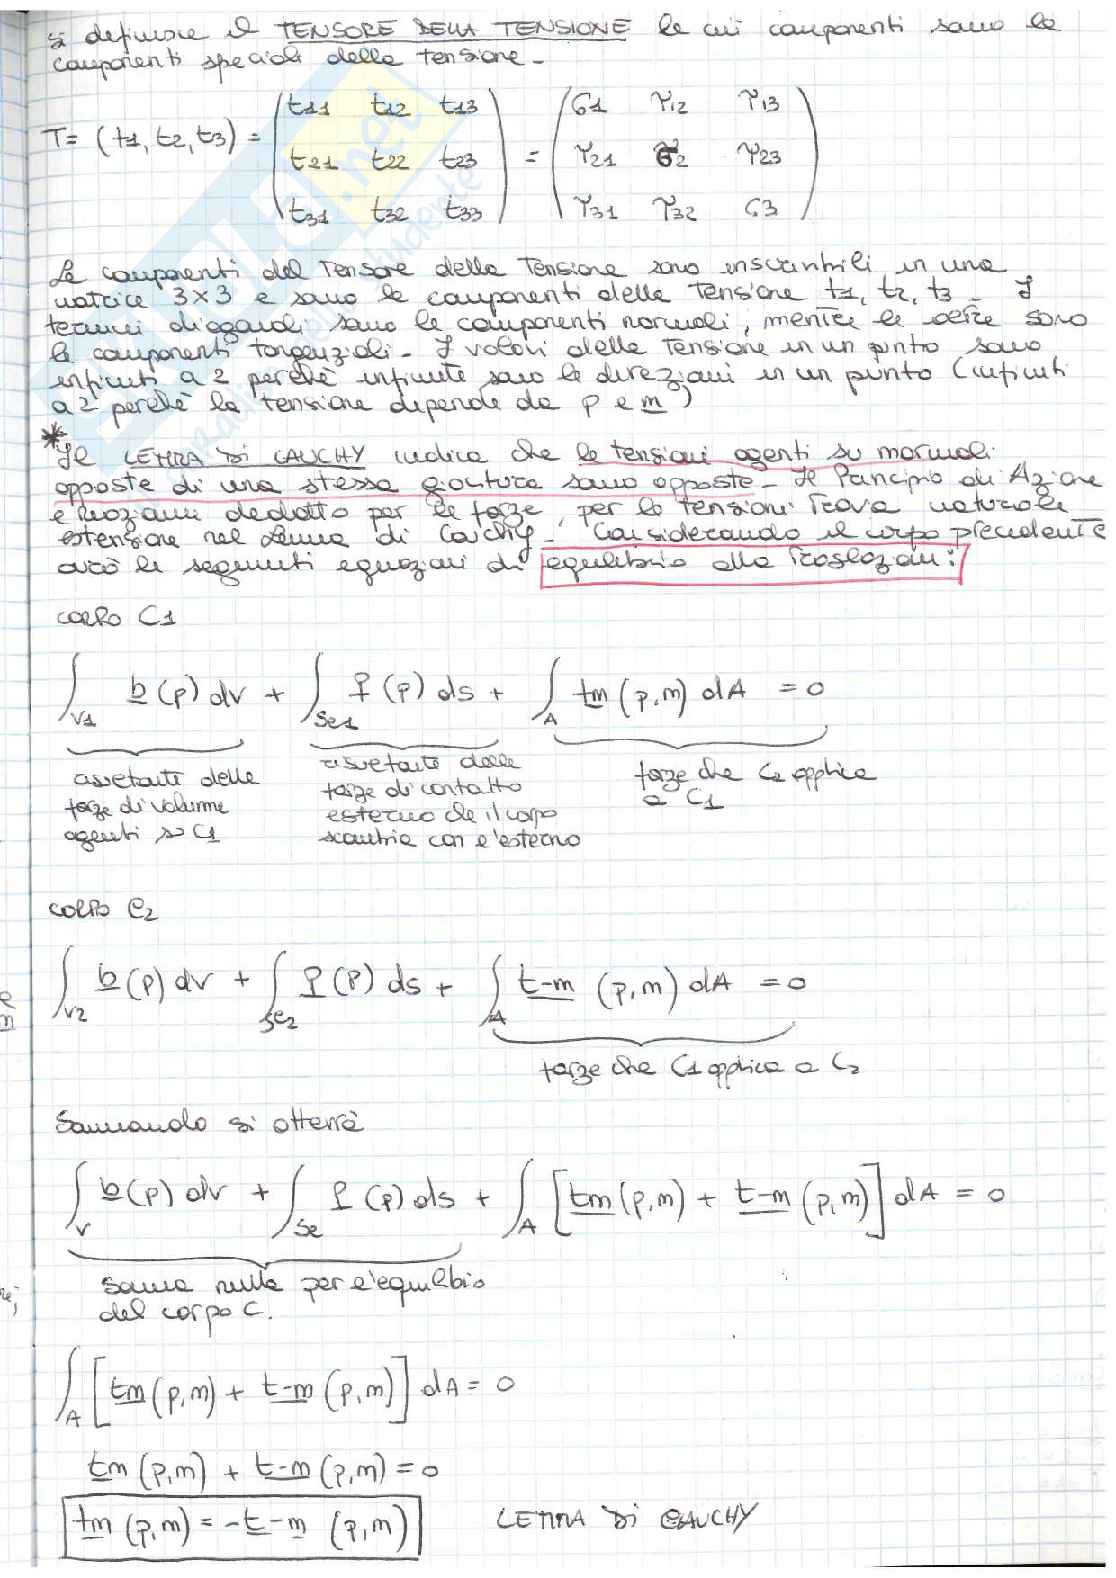 si definisce il TENSORE DELLA TENSIONE le cui componenti sono le
componenti speciali della tensione -
T = (t1, t2, t3) = (t11 t12 t13 / t21 t22 t23 / t31 t32 t33) = (σ1 τ12 τ13 / τ21 σ2 τ23 / τ31 τ32 σ3)
Le componenti del Tensore della Tensione sono inscrivibili in una
matrice 3×3 e sono le componenti della Tensione t1, t2, t3 - I
termini diagonali sono le componenti normali, mentre le altre sono
le componenti tangenziali - I valori della Tensione in un punto sono
infiniti a 2 perchè infinite sono le direzioni in un punto (infiniti
a 2 perchè la tensione dipende da p e m)
* Il LEMMA DI CAUCHY indica che le tensioni agenti su normali
opposte di una stessa giacitura sono opposte - Il Principio di Azione
e Reazione dedotto per le forze, per le tensioni Trova naturale
estensione nel Lemma di Cauchy - Considerando il corpo precedente
avrò le seguenti equazioni di equilibrio alla Traslazioni:
CORPO C1
∫V1 b(p) dv + ∫Se1 f(p) ds + ∫A tm (p,m) dA = 0
risultante delle
forze di volume
agenti su C1
risultante delle
forze di contatto
esterno che il corpo
scambia con l'esterno
forze che C2 applica
a C1
CORPO C2
∫V2 b(p) dv + ∫Se2 f(p) ds + ∫A t-m (p,m) dA = 0
forze che C1 applica a C2
Sommando si otterrà
∫V b(p) dv + ∫Se f(p) ds + ∫A [tm (p,m) + t-m (p,m)] dA = 0
somma nulla per l'equilibrio
del corpo C.
∫A [tm (p,m) + t-m (p,m)] dA = 0
tm (p,m) + t-m (p,m) = 0
tm (p,m) = -t-m (p,m) LEMMA DI CAUCHY